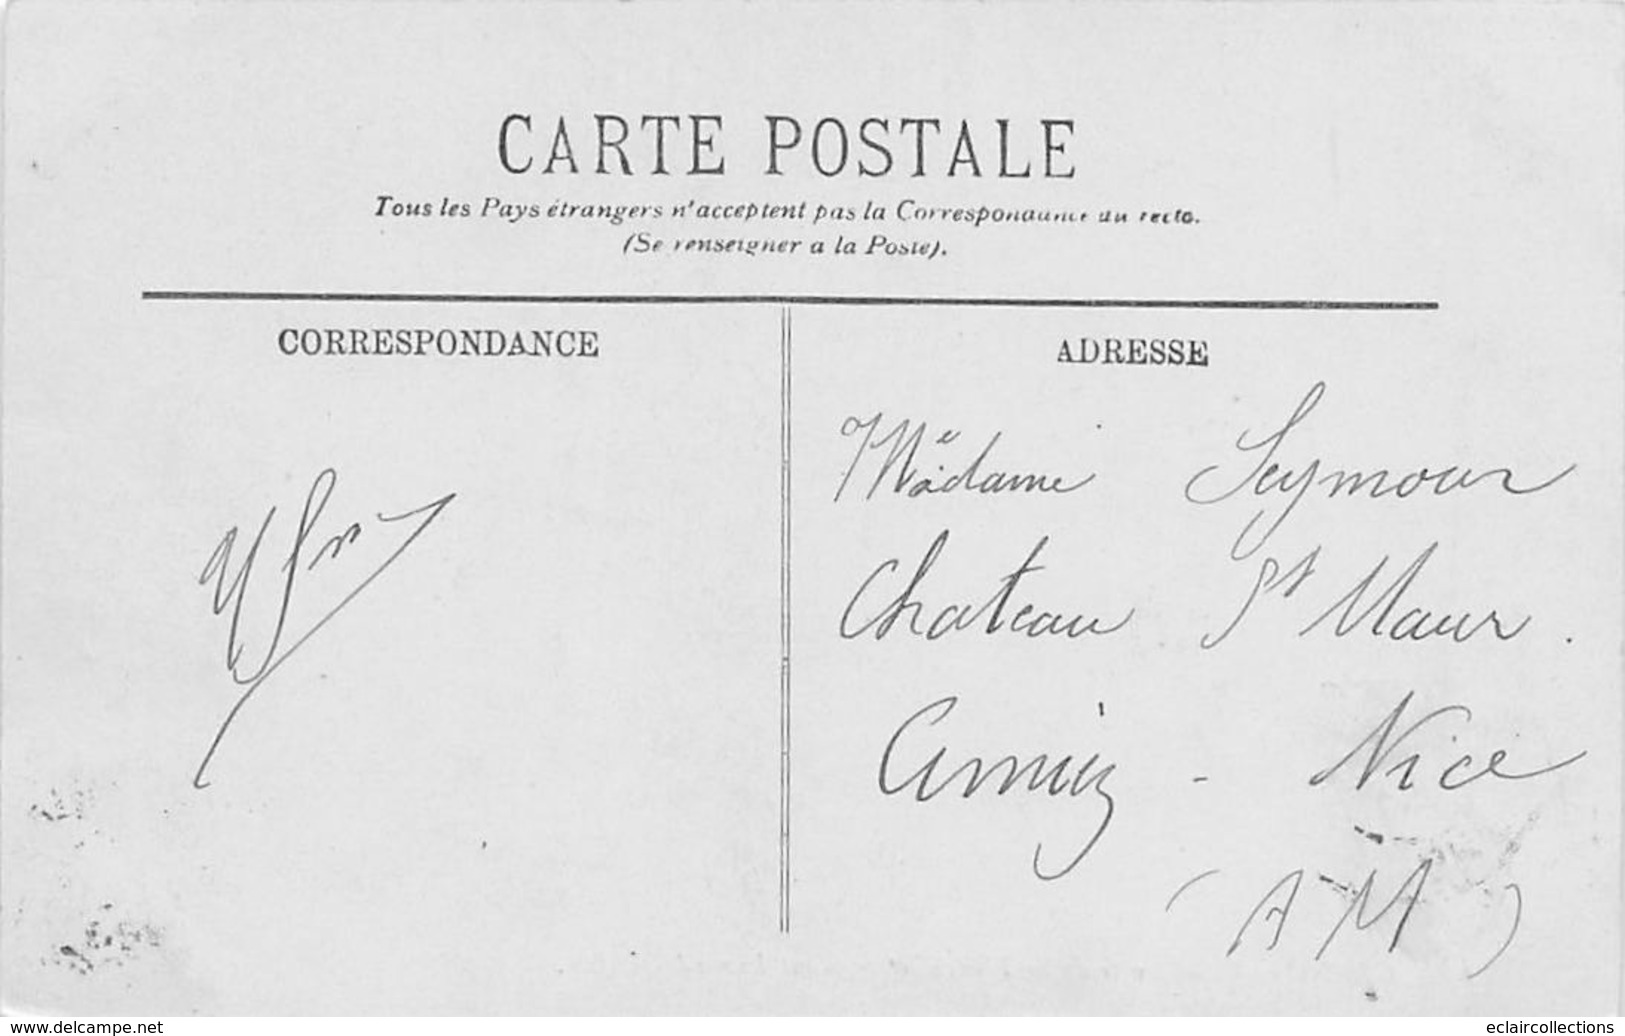 CARTE POSTALE
Tous les Pays étrangers n'acceptent pas la Correspondance au recto.
(Se renseigner a la Poste).
CORRESPONDANCE
ADRESSE
Madame Seymour
Chateau St Maur.
Cimiez - Nice
(A M)
www.delcampe.net
eclaircollections